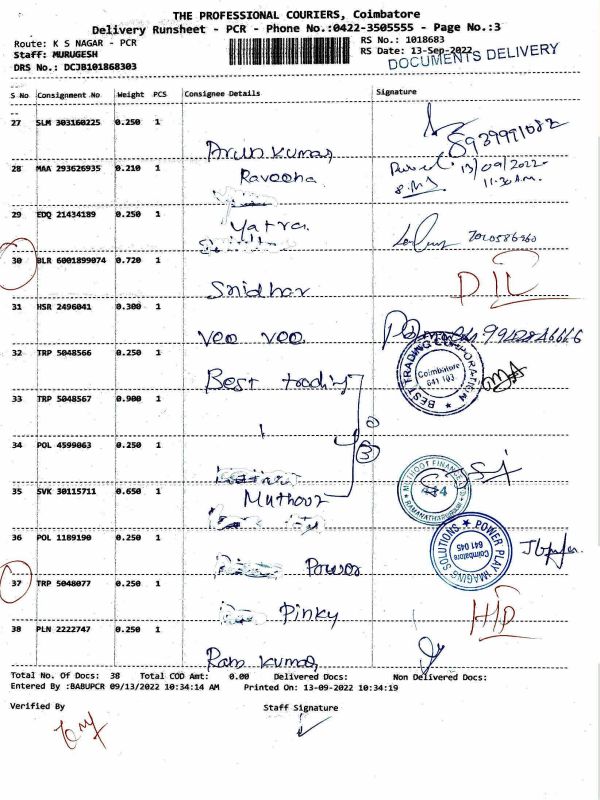 THE PROFESSIONAL COURIERS, Coimbatore
Delivery Runsheet - PCR - Phone No.:0422-3505555 - Page No.:3
Route: K S NAGAR - PCR
RS No.: 1018683
Staff: MURUGESH
RS Date: 13-Sep-2022
DOCUMENTS DELIVERY
DRS No.: DCJB101868303
S No Consignment No Weight PCS Consignee Details Signature
27 SLM 303160225 0.250 1
8939991082
Arun kumar
28 MAA 293626935 0.210 1
13/09/2022
Raveena
11.30 A.M.
29 EDQ 21434189 0.250 1
Yatra
30 BLR 6001899074 0.720 1
Sridhar
31 HSR 2496041 0.300 1
Voo Voo
32 TRP 5048566 0.250 1
Best trading
BEST TRADING CORPORATION
Coimbatore
641 103
33 TRP 5048567 0.900 1
34 POL 4599063 0.250 1
3
35 SVK 30115711 0.650 1
Muthoot
MUTHOOT FINANCE LTD
RAMANATHAPURAM
36 POL 1189190 0.250 1
Power
POWER PLAY IMAGING SOLUTIONS
Coimbatore
641 045
37 TRP 5048077 0.250 1
Pinky
38 PLN 2222747 0.250 1
Ram kumar
Total No. Of Docs: 38 Total COD Amt: 0.00 Delivered Docs: Non Delivered Docs:
Entered By :BABUPCR 09/13/2022 10:34:14 AM Printed On: 13-09-2022 10:34:19
Verified By Staff Signature